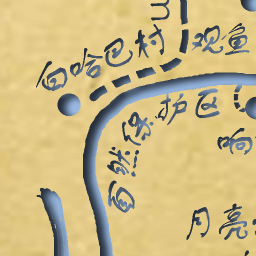 白哈巴村
观鱼
自然保护区
响
月亮